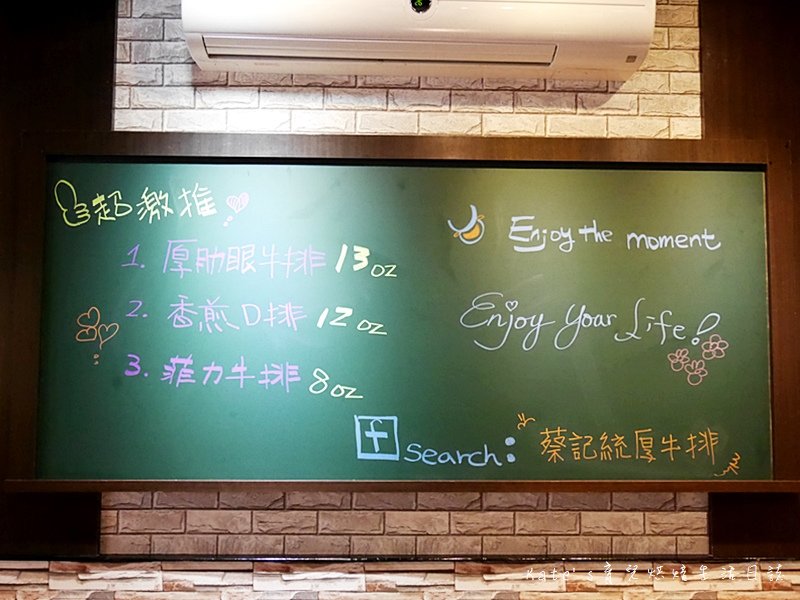 超激推
1. 厚肋眼牛排 13oz
2. 香煎D排 12oz
3. 菲力牛排 8oz
Enjoy the moment
Enjoy Your Life!
f Search: 蔡記統厚牛排
Kate's育兒烘焙生活日誌